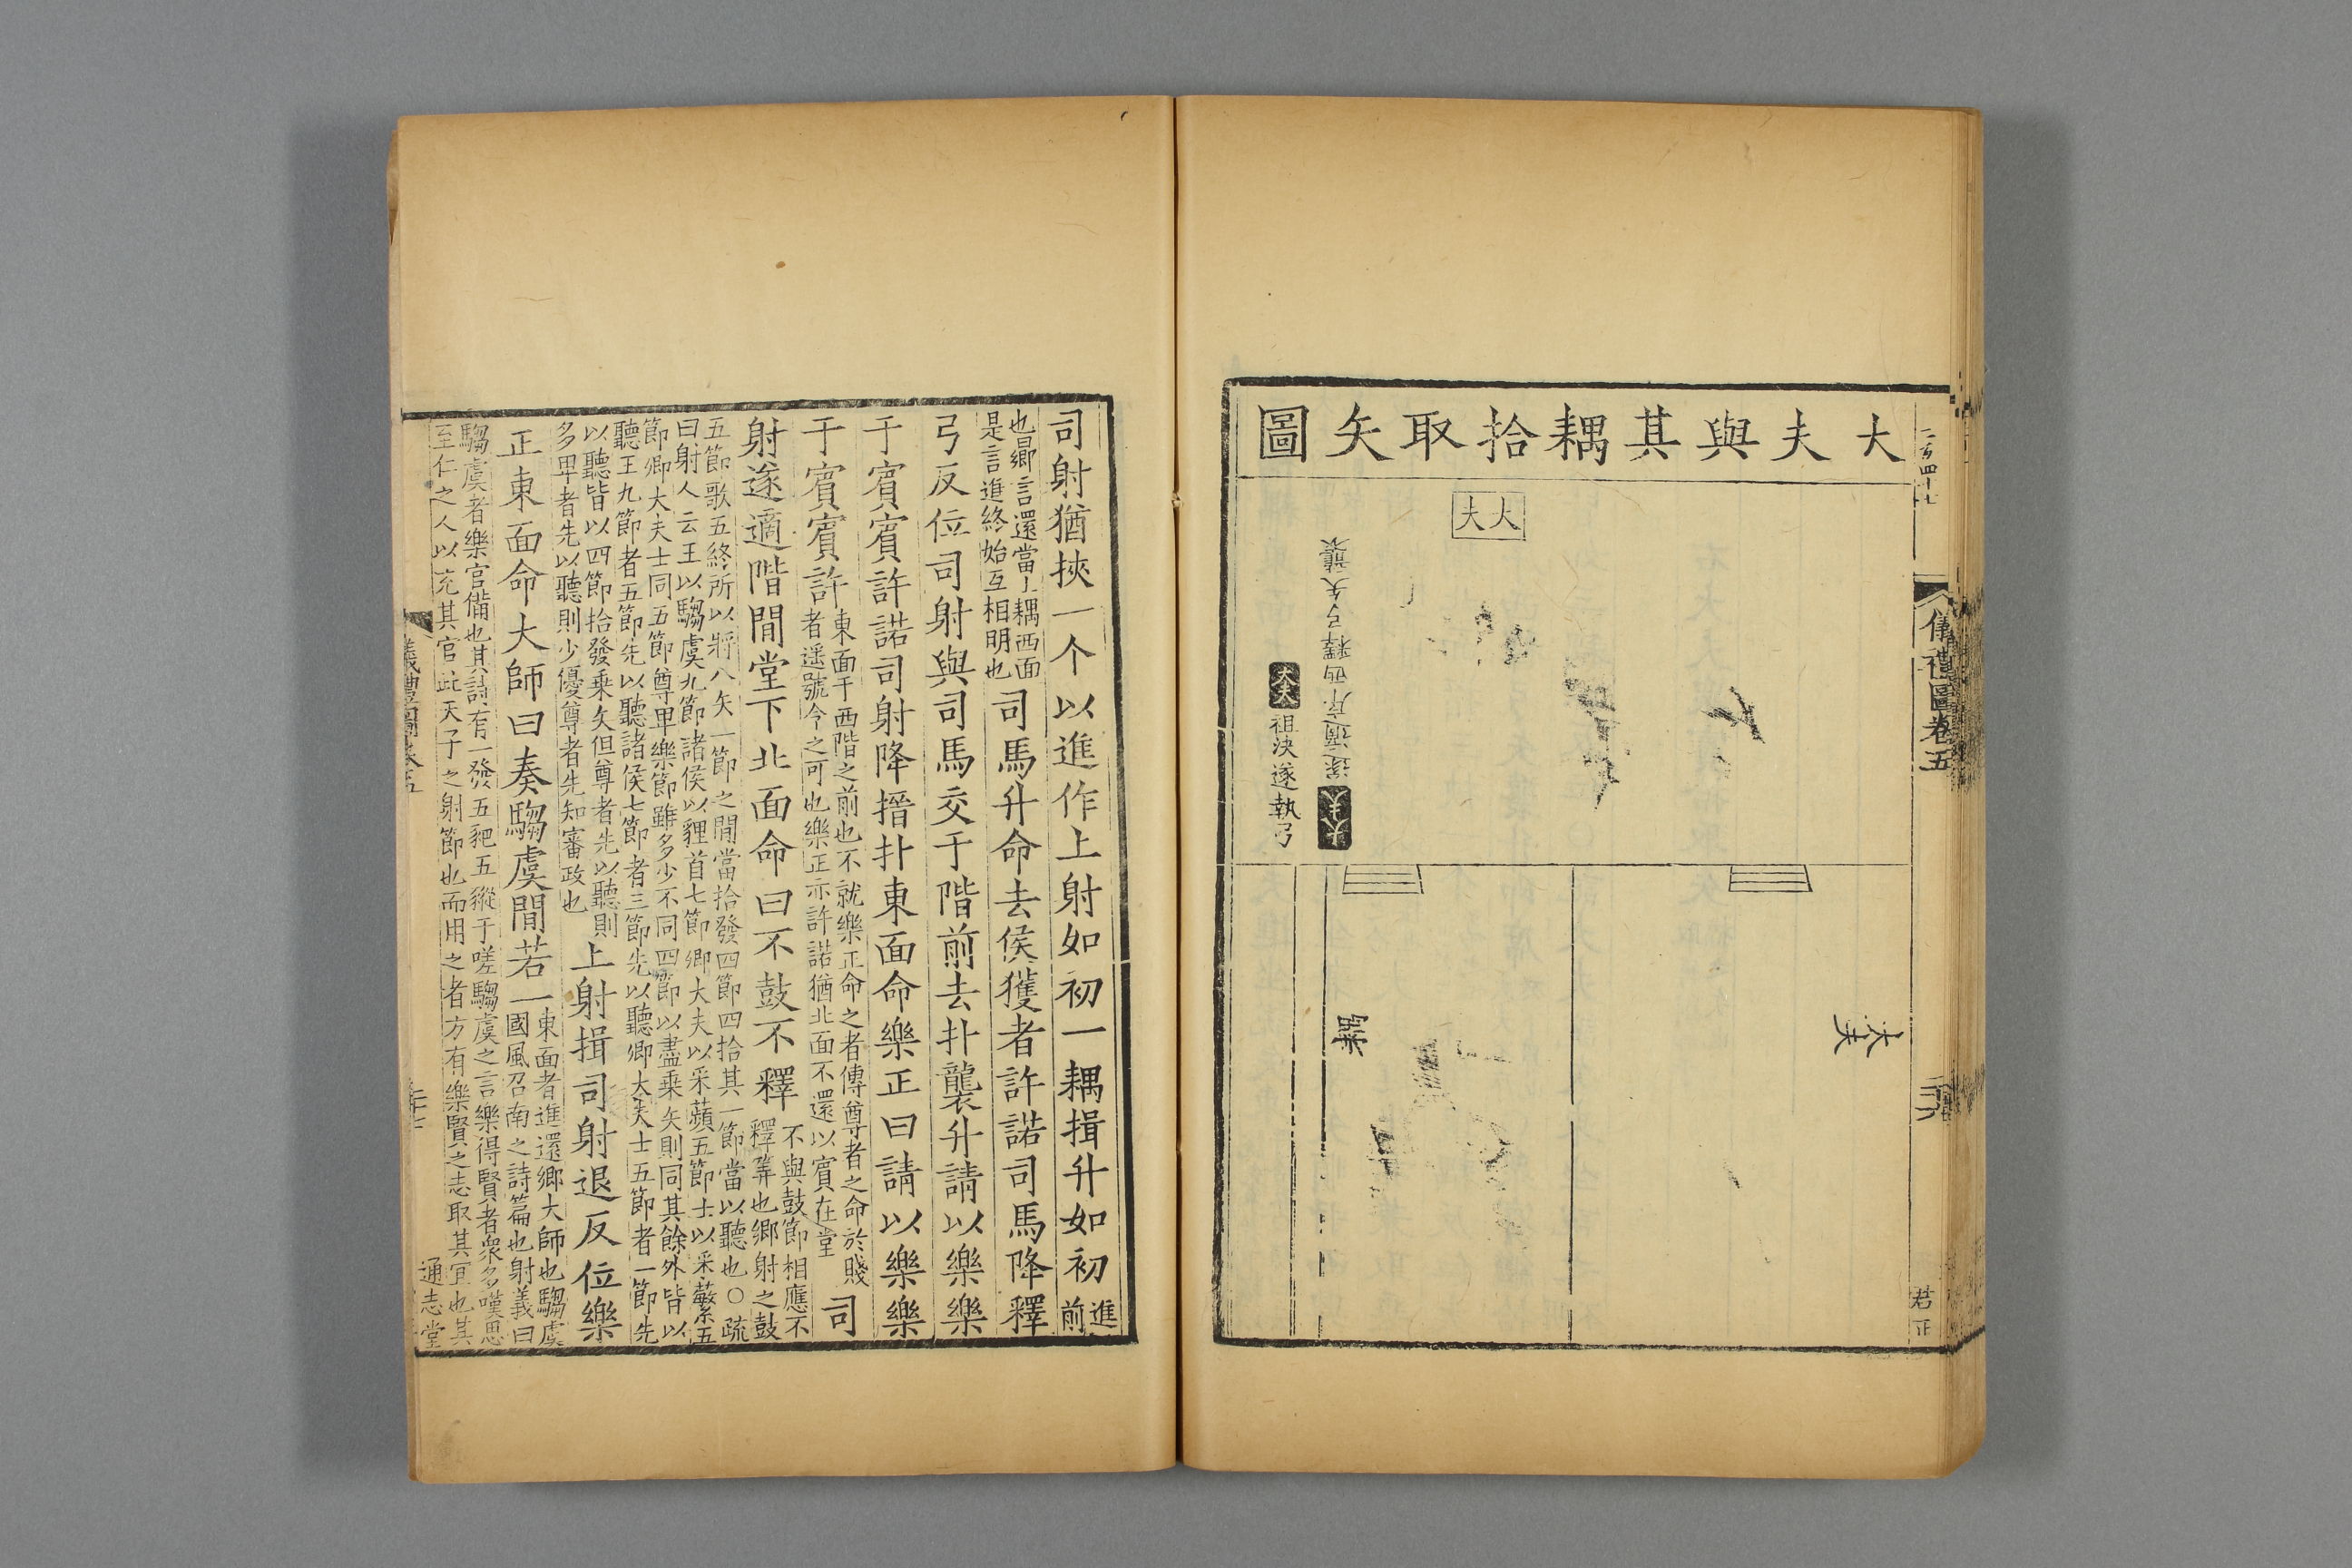 二百四十七
儀禮圖卷五
二六
君正
大夫與其耦拾取矢圖
大夫
大夫
耦
大夫遂適序西釋弓矢襲
大夫袒決遂執弓
司射猶挾一个以進作上射如初一耦揖升如初進
前
也曏言還當上耦西面
是言進終始互相明也
司馬升命去侯獲者許諾司馬降釋
弓反位司射與司馬交于階前去扑襲升請以樂樂
于賓賓許諾司射降搢扑東面命樂正曰請以樂樂
于賓賓許
東面于西階之前也不就樂正命之者傳尊者之命於賤
者遥號令之可也樂正亦許諾猶北面不還以賓在堂
司
射遂適階閒堂下北面命曰不鼓不釋
不與鼓節相應不
釋筭也鄉射之鼓
五節歌五終所以將八矢一節之閒當拾發四節四拾其一節當以聽也○疏
曰射人云王以騶虞九節諸侯以貍首七節卿大夫以采蘋五節士以采蘩五
節卿大夫士同五節尊卑樂節雖多少不同四節以盡乘矢則同其餘外皆以
聽王九節者五節先以聽諸侯七節者三節先以聽卿大夫士五節者一節先
以聽皆以四節拾發乘矢但尊者先以聽則
多卑者先以聽則少優尊者先知審政也
上射揖司射退反位樂
正東面命大師曰奏騶虞閒若一
東面者進還鄉大師也騶虞
國風召南之詩篇也射義曰
騶虞者樂官備也其詩有一發五豝五豵于嗟騶虞之言樂得賢者衆多嘆思
至仁之人以充其官此天子之射節也而用之者方有樂賢之志取其宜也其
儀禮圖卷五
通志堂